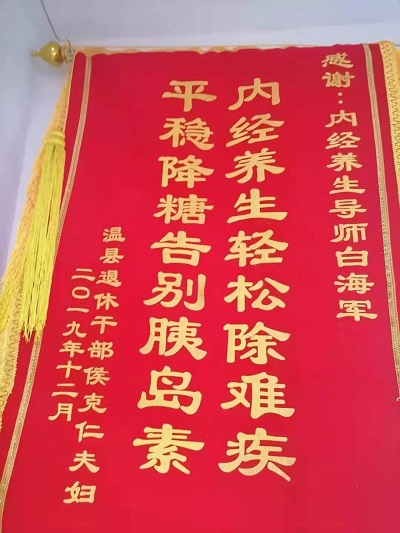 感谢：内经养生导师白海军
内经养生轻松除难疾
平稳降糖告别胰岛素
温县退休干部侯克仁夫妇
二〇一九年十二月